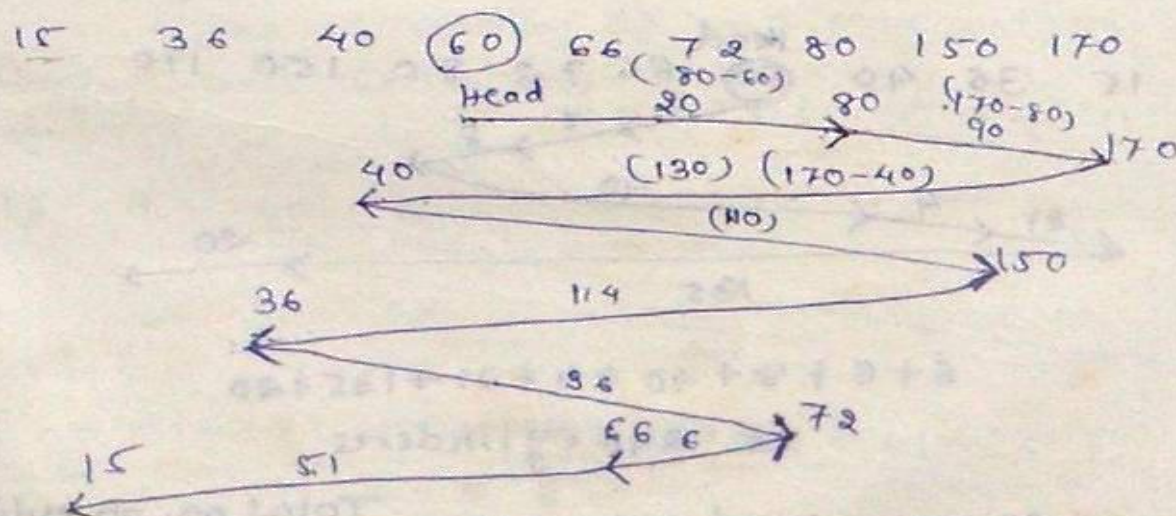 15 36 40 60 66 72 80 150 170
(80-60)
Head 20 80 (170-80)
90
170
40 (130) (170-40)
(110)
150
36 114
36
72
66 6
15 51